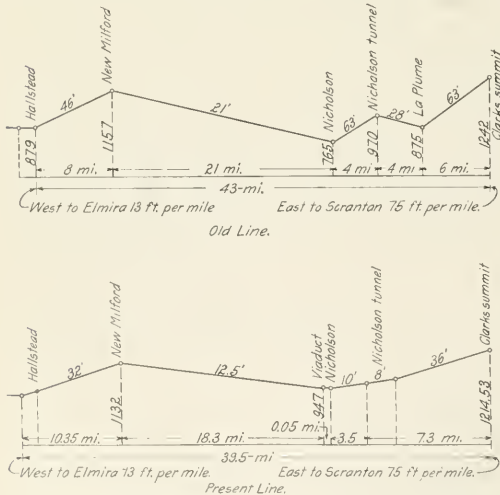 Hallstead
New Milford
Nicholson
Nicholson tunnel
La Plume
Clarks summit
46'
21'
63'
28'
63'
879
1157
765
970
875
1242
8 mi.
21 mi.
4 mi.
4 mi.
6 mi.
43-mi.
West to Elmira 13 ft. per mile
East to Scranton 75 ft. per mile.
Old Line.
Hallstead
New Milford
Viaduct
Nicholson
Nicholson tunnel
Clarks summit
32'
12.5'
10'
8'
36'
1132
947
1214.53
0.05 mi.
10.35 mi.
18.3 mi.
3.5
7.3 mi.
39.5-mi
West to Elmira 13 ft. per mile.
East to Scranton 75 ft. per mile
Present Line.